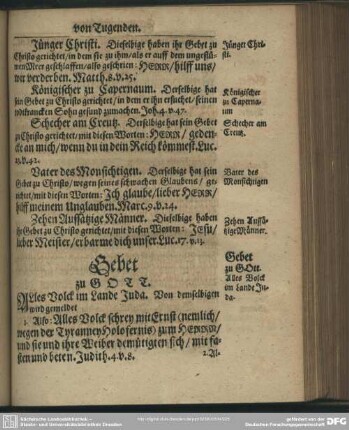 von Tugenden.
Jünger Christi. Dieselbige haben ihr Gebet zu
Christo gerichtet / in dem sie zu ihm / als er auff dem ungestü-
men Meer geschlaffen / also geschrien: HERR / hilff uns /
wir verderben. Matth. 8. v. 25.
Königischer zu Capernaum. Derselbige hat
sein Gebet zu Christo gerichtet / in dem er ihn ersuchet / seinen
todtkrancken Sohn gesund zumachen. Joh. 4. v. 47.
Schecher am Creutz. Derselbige hat sein Gebet
zu Christo gerichtet / mit diesen Worten: HERR / geden-
cke an mich / wenn du in dein Reich kömmest. Luc.
23. v. 42.
Vater des Monsichtigen. Derselbige hat sein
Gebet zu Christo / wegen seines schwachen Glaubens / ge-
richtet / mit diesen Worten: Ich glaube / lieber HERR /
hilff meinem Unglauben. Marc. 9. v. 24.
Zehen Aussätzige Männer. Dieselbige haben
ihr Gebet zu Christo gerichtet / mit diesen Worten: JESU /
lieber Meister / erbarme dich unser. Luc. 17. v. 13.
Gebet
zu GOTT.
ALles Volck im Lande Juda. Von demselbigen
wird gemeldet
1. Also: Alles Volck schrey mit Ernst (nemlich /
wegen der Tyranney Holofernis) zum HERRN /
und sie und ihre Weiber demütigten sich / mit fa-
sten und beten. Judith. 4. v. 8.
2. Al-
Jünger Chri-
sti.
Königischer
zu Caperna-
um
Schecher am
Creutz.
Vater des
Monsichtigen
Zehen Aussä-
tzige Männer.
Gebet
zu GOtt.
Alles Volck
im Lande Ju-
da.
Sächsische Landesbibliothek –
Staats- und Universitätsbibliothek Dresden
gefördert von der
DFG
Deutschen Forschungsgemeinschaft